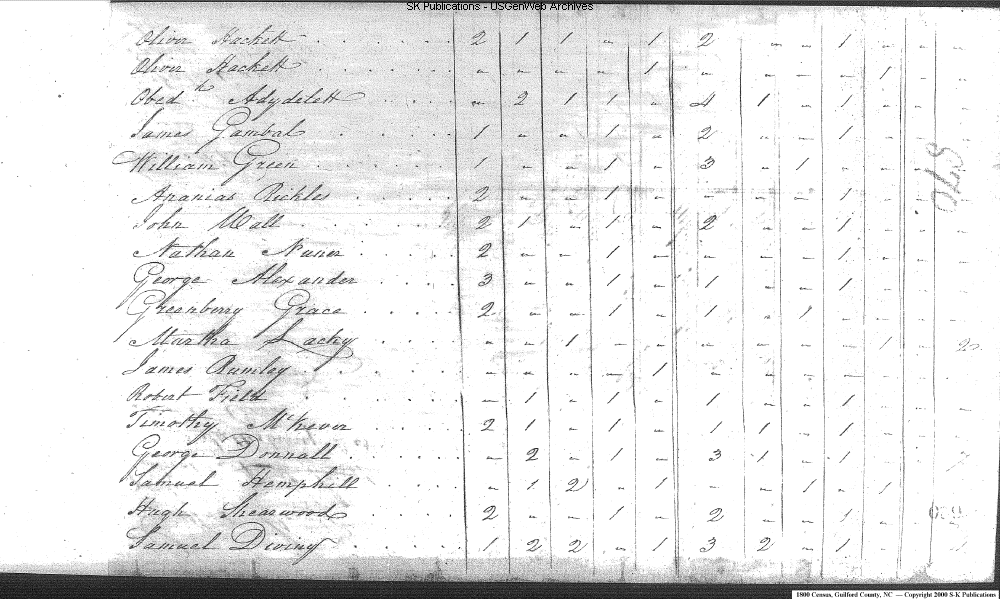 SK Publications - USGenWeb Archives
Oliver Hackett 2 1 1 - 1 2 - - 1 - - -
Oliver Hackett - - - - 1 - - - - 1 - -
Obed h Adydelett - 2 1 1 - 4 1 - 1 - - -
James Gambal 1 - - 1 - 2 - - 1 - - -
William Green 1 - - 1 - 3 - 1 - - - -
Ananias Rickles 2 - - 1 - - - - 1 - - -
John Wall 2 1 - 1 - 2 - - 1 - - -
Nathan Nuner 2 - - 1 - - - - 1 - - -
George Alexander 3 - - 1 - 1 - - 1 - - -
Greenberry Grace 2 - - 1 - 1 - 1 - - - -
Martha Lacky - - 1 - - - - - - 1 - 2
James Rumley - - - - 1 - - - - - -
Robert Field - 1 - 1 - 1 - - 1 - - -
Timothy McKever 2 1 - 1 - 1 1 - 1 - - -
George Donnall - 2 - 1 - 3 1 - 1 - -
Samuel Hemphill - 1 2 - 1 - - 1 - 1 -
Hugh Shearwood 2 - - 1 - 2 - - 1 - -
Samuel Diviny 1 2 2 - 1 3 2 - 1 - -
1800 Census, Guilford County, NC — Copyright 2000 S-K Publications